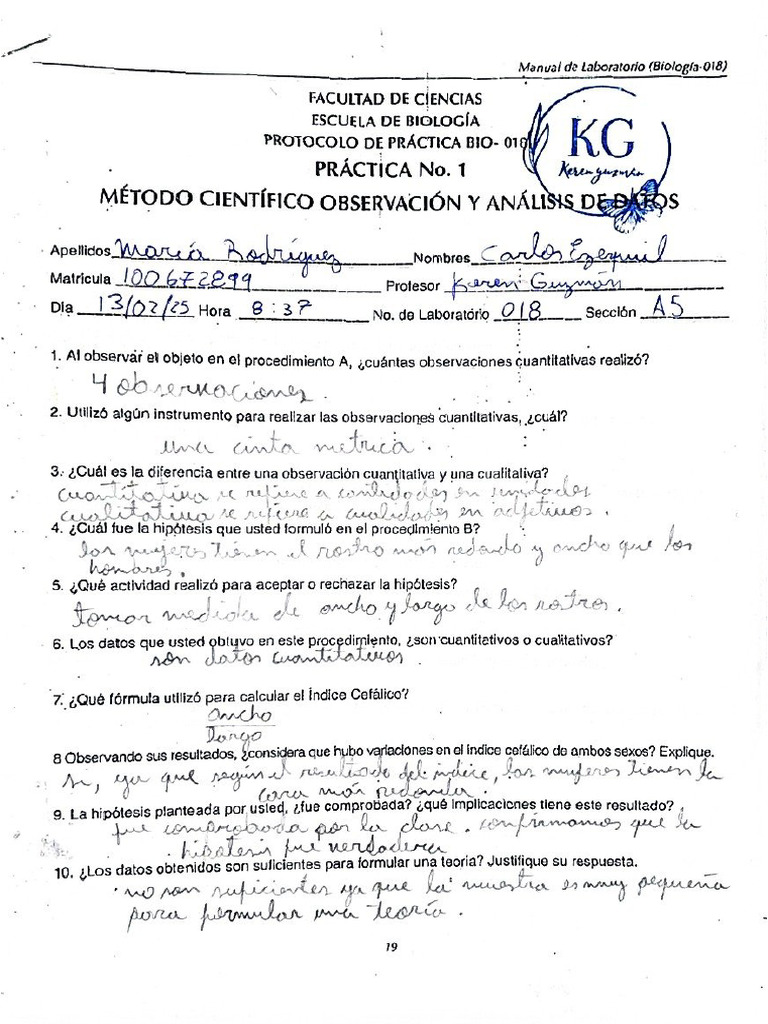 Manual de Laboratorio (Biología-018)
FACULTAD DE CIENCIAS
ESCUELA DE BIOLOGÍA
PROTOCOLO DE PRÁCTICA BIO- 018
KG
Keren guzmán
PRÁCTICA No. 1
MÉTODO CIENTÍFICO OBSERVACIÓN Y ANÁLISIS DE DATOS
Apellidos María Rodríguez Nombres Carlos Ezequil
Matricula 100672899 Profesor Keren Guzmán
Dia 13/02/25 Hora 8:37 No. de Laboratório 018 Sección A5
1. Al observar el objeto en el procedimiento A, ¿cuántas observaciones cuantitativas realizó?
4 observaciones.
2. Utilizó algún instrumento para realizar las observaciones cuantitativas, ¿cuál?
una cinta metrica.
3. ¿Cuál es la diferencia entre una observación cuantitativa y una cualitativa?
cuantitativa se refiere a cantidades en unidades
cualitativa se refiere a cualidades en adjetivos.
4. ¿Cuál fue la hipótesis que usted formuló en el procedimiento B?
las mujeres tienen el rostro más redondo y ancho que los
hombres.
5. ¿Qué actividad realizó para aceptar o rechazar la hipótesis?
tomar medida de ancho y largo de los rostros.
6. Los datos que usted obtuvo en este procedimiento, ¿son cuantitativos o cualitativos?
son datos cuantitativos
7. ¿Qué fórmula utilizó para calcular el Índice Cefálico?
Ancho
Largo
8 Observando sus resultados, ¿considera que hubo variaciones en el indice cefálico de ambos sexos? Explique.
si, ya que según el resultado del indice, las mujeres tienen la
cara más redonda.
9. La hipótesis planteada por usted, ¿fue comprobada? ¿qué implicaciones tiene este resultado?
fue comprobada por la clase. confirmamos que la
hipotesis fue verdadera
10. ¿Los datos obtenidos son suficientes para formular una teoría? Justifique su respuesta.
no son suficientes ya que la muestra es muy pequeña
para formular una teoría.
19